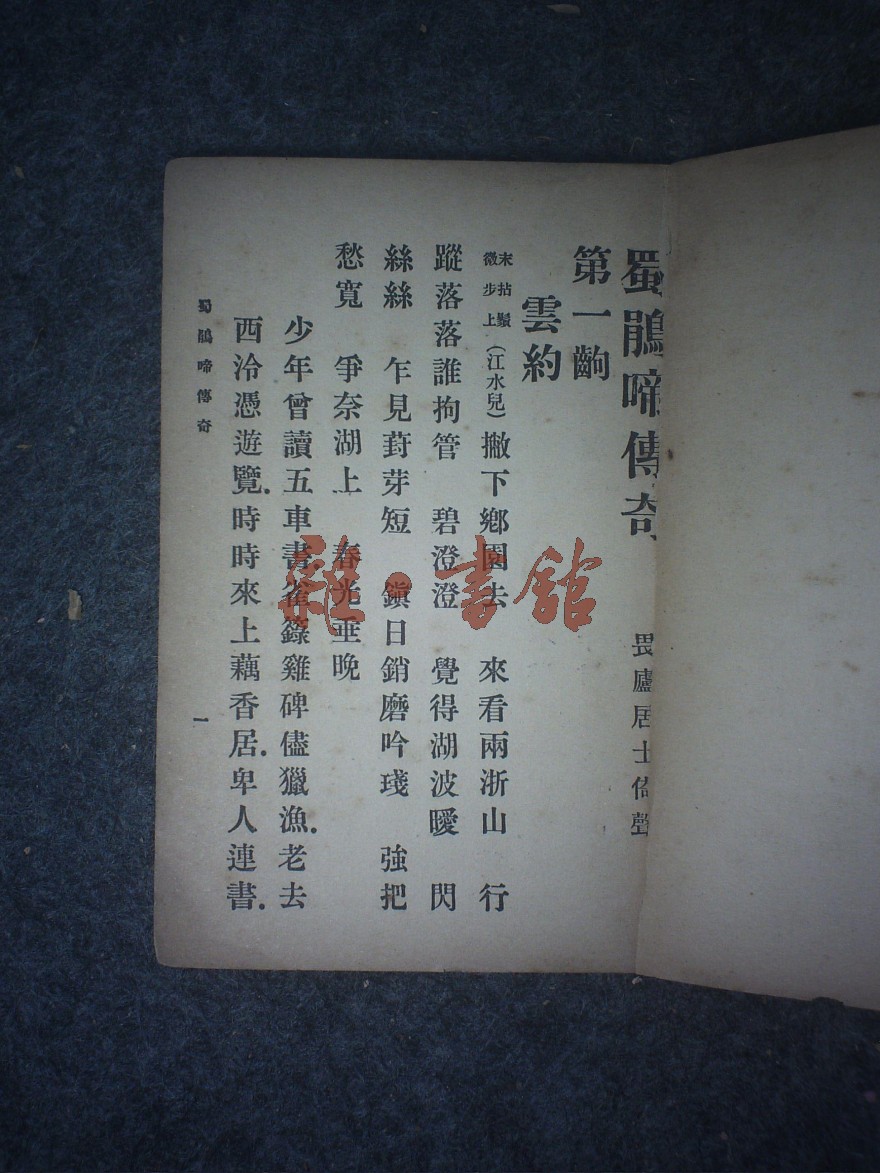 蜀鵑啼傳奇
畏廬居士倚聲
第一齣
雲約
末拈鬚
微步上(江水兒)撇下鄉園去 來看兩浙山 行
蹤落落誰拘管 碧澄澄 覺得湖波曖 閃
絲絲 乍見葑芽短 鎭日銷磨吟琖 強把
愁寬 爭奈湖上 春光垂晚
少年曾讀五車書.雀籙雞碑儘獵漁.老去
西泠憑遊覽.時時來上藕香居.卑人連書.
蜀鵑啼傳奇
一
雜·書館